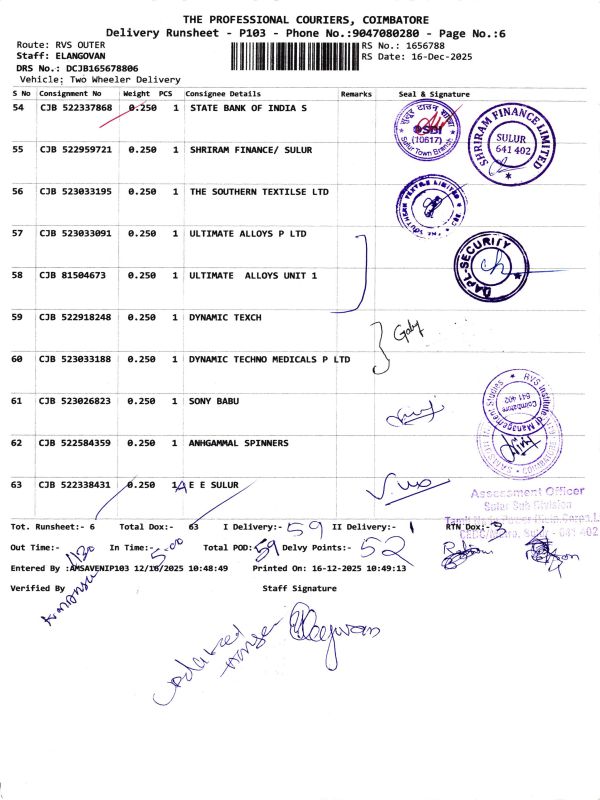 THE PROFESSIONAL COURIERS, COIMBATORE
Delivery Runsheet - P103 - Phone No.:9047080280 - Page No.:6
Route: RVS OUTER RS No.: 1656788
Staff: ELANGOVAN RS Date: 16-Dec-2025
DRS No.: DCJB165678806
Vehicle: Two Wheeler Delivery
S No Consignment No Weight PCS Consignee Details Remarks Seal & Signature
54 CJB 522337868 0.250 1 STATE BANK OF INDIA S
SBI
(10617)
Sulur Town Branch
SHRIRAM FINANCE LIMITED
SULUR
641 402
55 CJB 522959721 0.250 1 SHRIRAM FINANCE/ SULUR
56 CJB 523033195 0.250 1 THE SOUTHERN TEXTILSE LTD
57 CJB 523033091 0.250 1 ULTIMATE ALLOYS P LTD
-SECURITY
58 CJB 81504673 0.250 1 ULTIMATE ALLOYS UNIT 1
59 CJB 522918248 0.250 1 DYNAMIC TEXCH
60 CJB 523033188 0.250 1 DYNAMIC TECHNO MEDICALS P LTD
RVS Institute of Management Studies
Coimbatore
641 402
61 CJB 523026823 0.250 1 SONY BABU
62 CJB 522584359 0.250 1 ANHGAMMAL SPINNERS
63 CJB 522338431 0.250 1 A E E SULUR
Assessment Officer
Sulur Sub Division
Tot. Runsheet:- 6 Total Dox:- 63 I Delivery:- 59 II Delivery:- 1 RTN Dox:- 3
Out Time:- 1130 In Time:- 5.00 Total POD:- 59 Delvy Points:- 52
Entered By :AMSAVENIP103 12/16/2025 10:48:49 Printed On: 16-12-2025 10:49:13
Verified By Staff Signature
updated